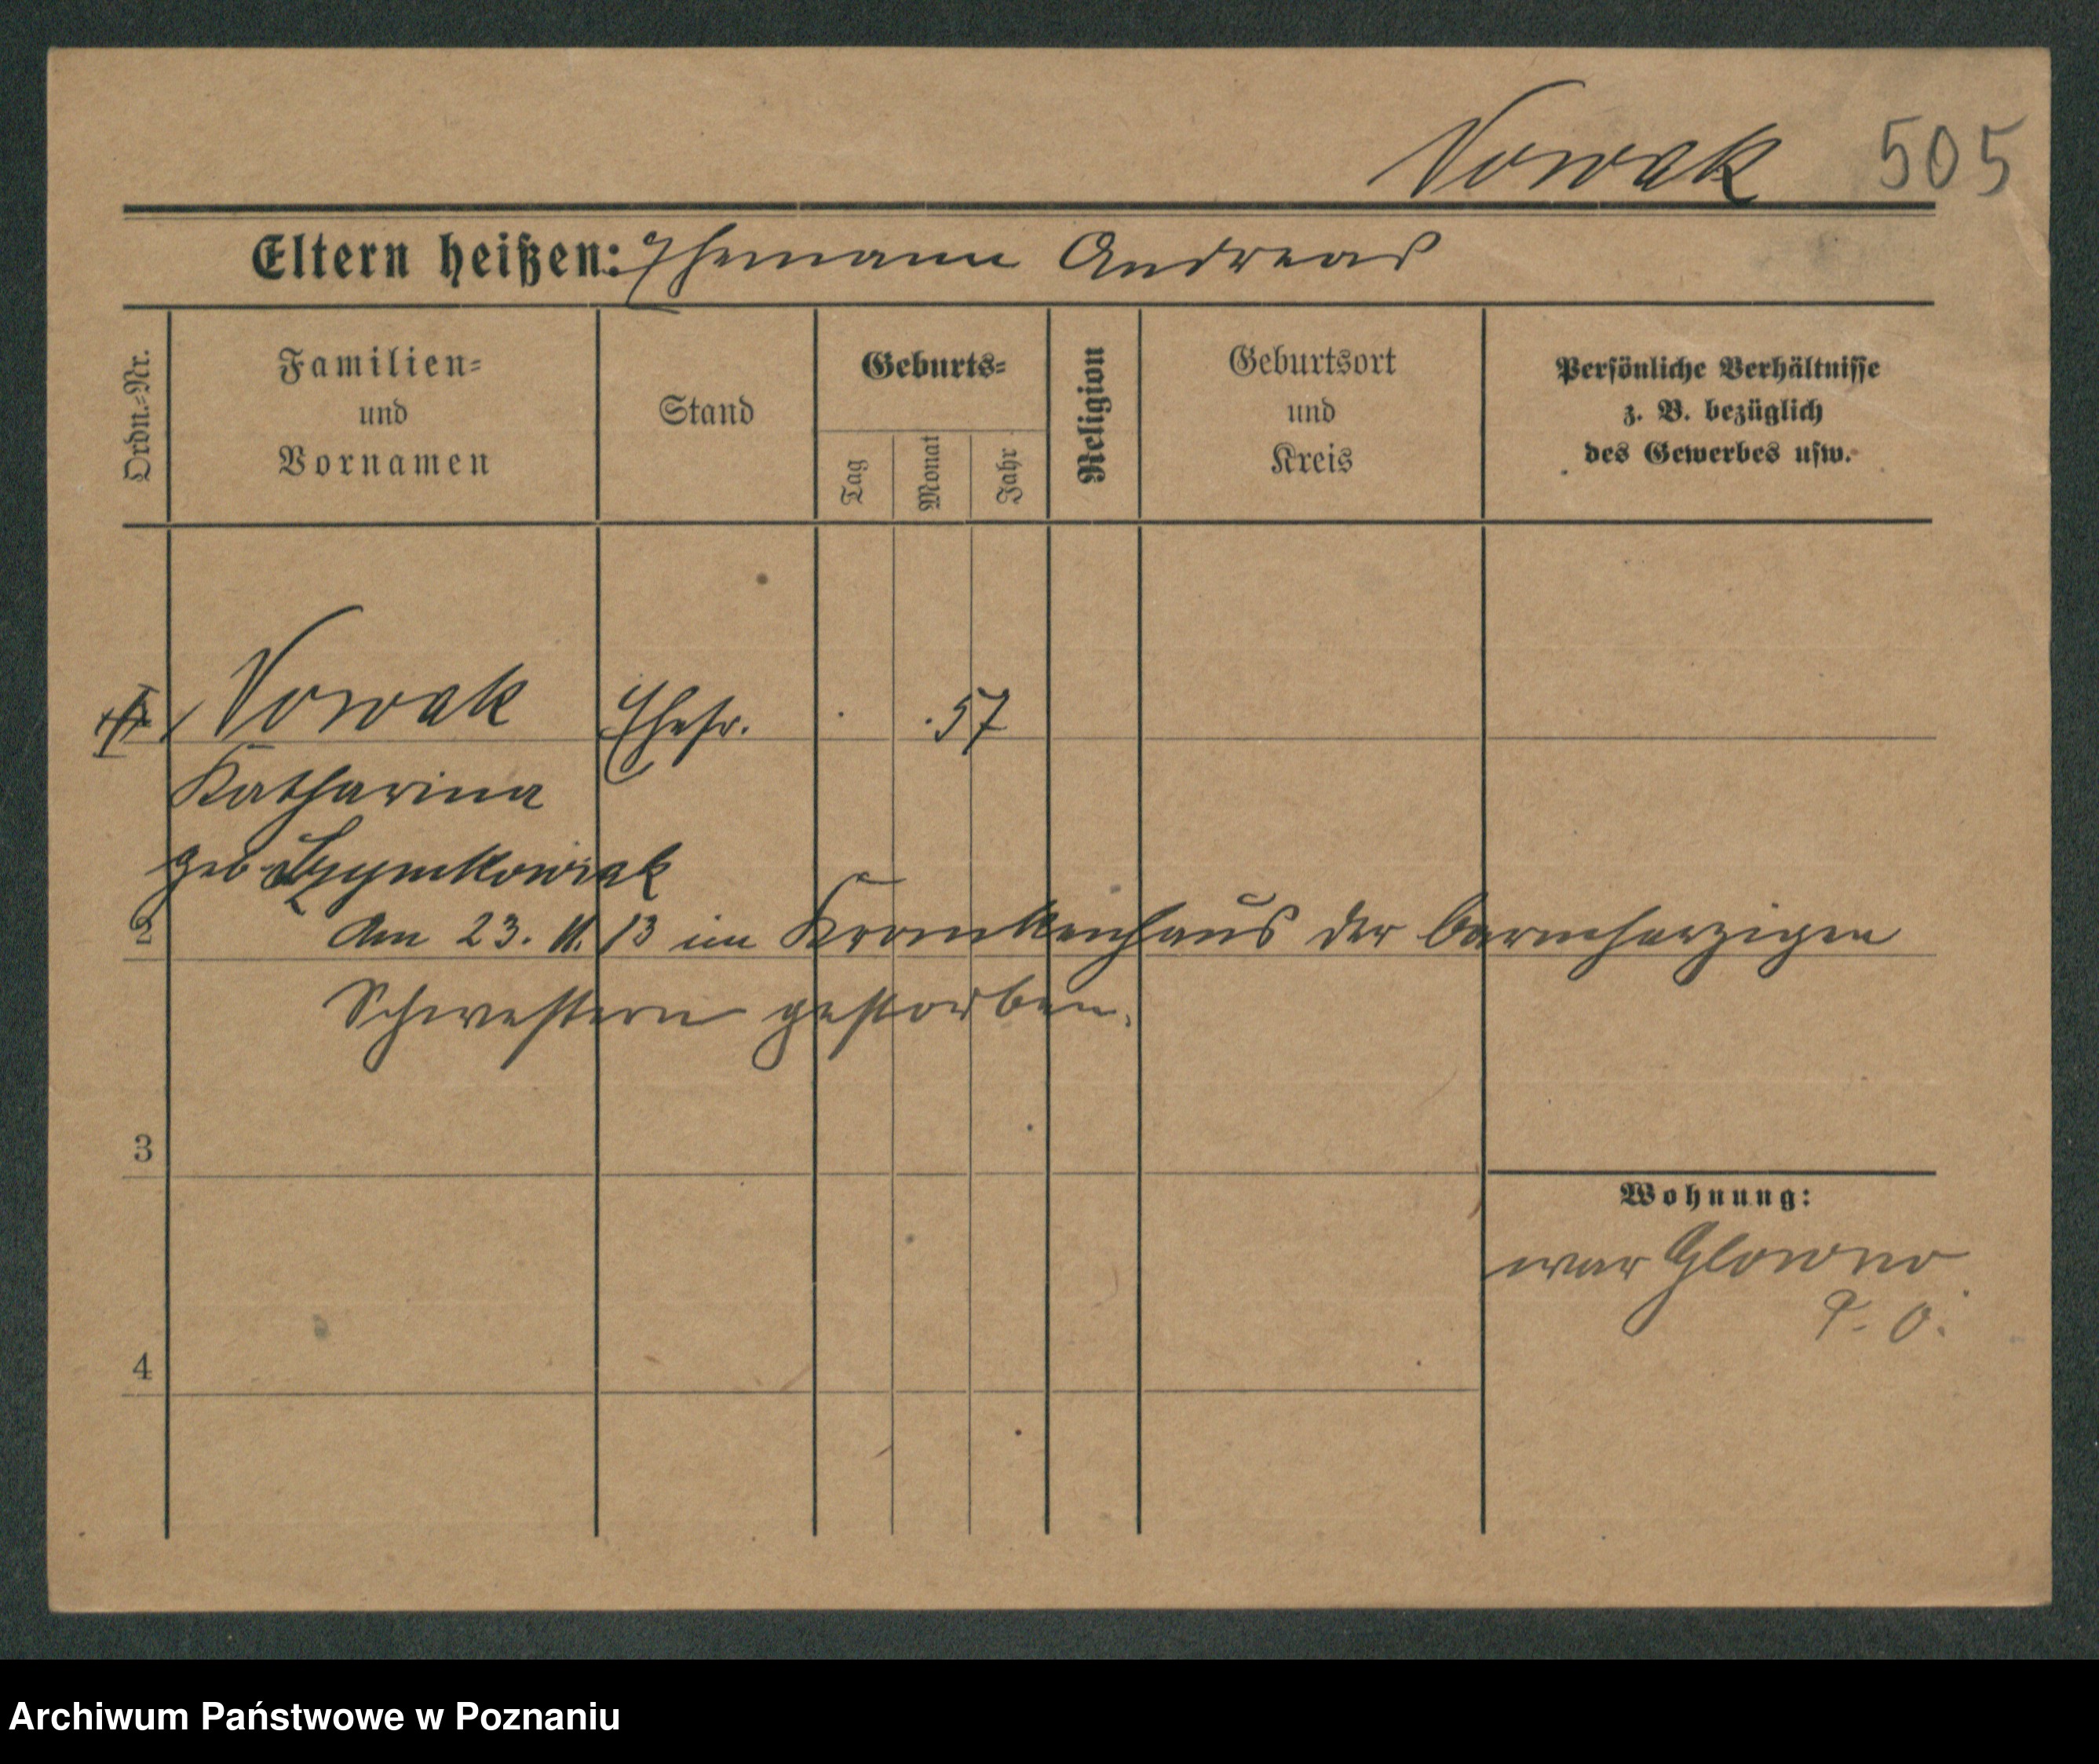 Nowak 505
Eltern heißen: Ehemann Andreas
Ordn.-Nr.
Familien-
und
Vornamen
Stand
Geburts-
Tag
Monat
Jahr
Religion
Geburtsort
und
Kreis
Persönliche Verhältnisse
z. B. bezüglich
des Gewerbes usw.
Nowak Ehefr. . .57
Katharina
geb Szymkowiak
2 Am 23. 11. 13 im Krankenhaus der barmherzigen
Schwestern gestorben.
3
Wohnung:
war Glowno
P. O.
4
Archiwum Państwowe w Poznaniu